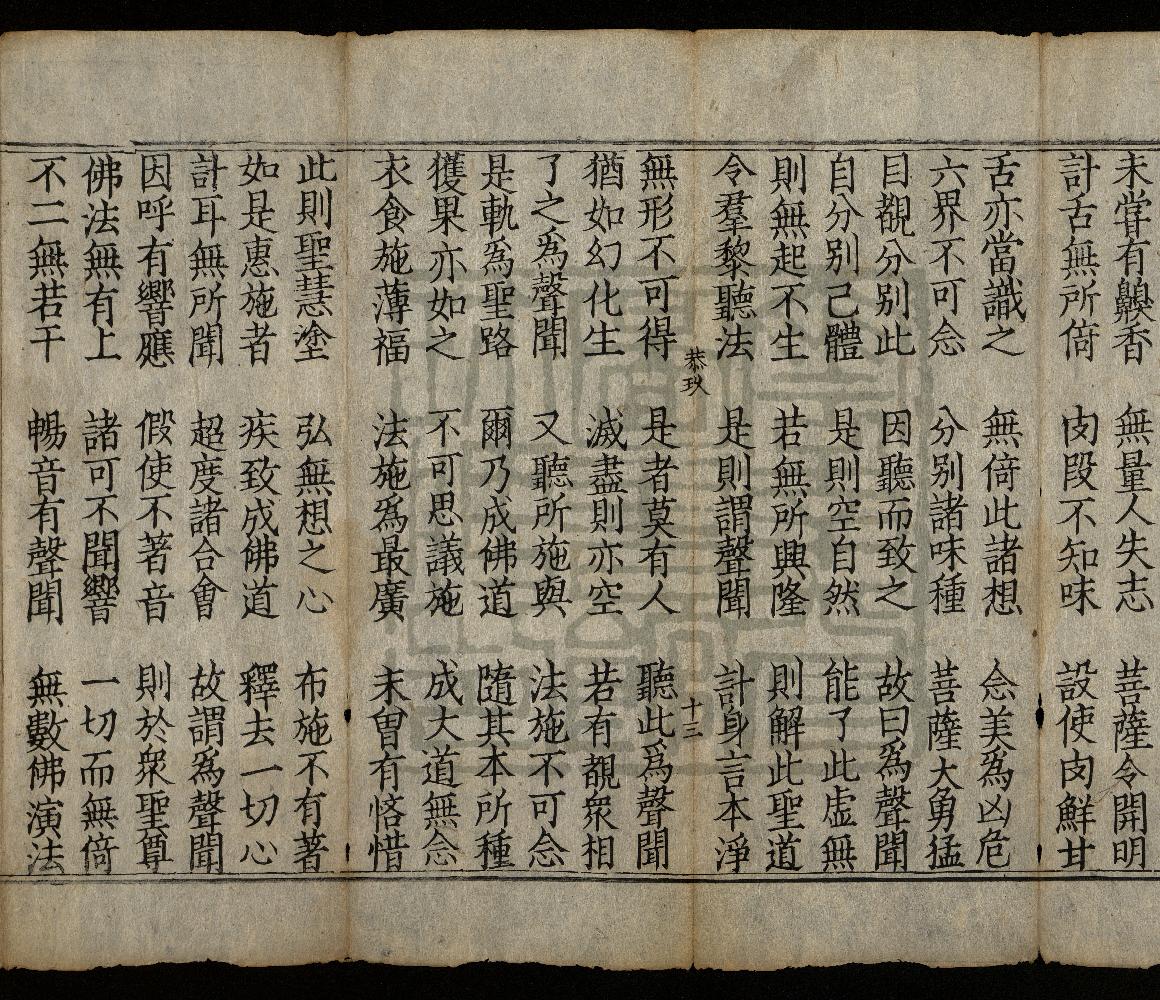 未甞有齅香　無量人失志　菩薩令開明
計舌無所倚　肉段不知味　設使肉鮮甘
舌亦當識之　無倚此諸想　念美爲凶危
六界不可念　分别諸味種　菩薩大勇猛
目覩分别此　因聽而致之　故曰爲聲聞
自分别己體　是則空自然　能了此虚無
則無起不生　若無所興隆　則解此聖道
令羣黎聽法　是則謂聲聞　計身言本淨
恭玖　十三
無形不可得　是者莫有人　聽此爲聲聞
猶如幻化生　滅盡則亦空　若有覩衆相
了之爲聲聞　又聽所施與　法施不可念
是軌爲聖路　爾乃成佛道　隨其本所種
獲果亦如之　不可思議施　成大道無念
衣食施薄福　法施爲最廣　未曾有悋惜
此則聖慧塗　弘無想之心　布施不有著
如是惠施者　疾致成佛道　釋去一切心
計耳無所聞　超度諸合會　故謂爲聲聞
因呼有響應　假使不著音　則於衆聖尊
佛法無有上　諸可不聞響　一切而無倚
不二無若干　暢音有聲聞　無數佛演法